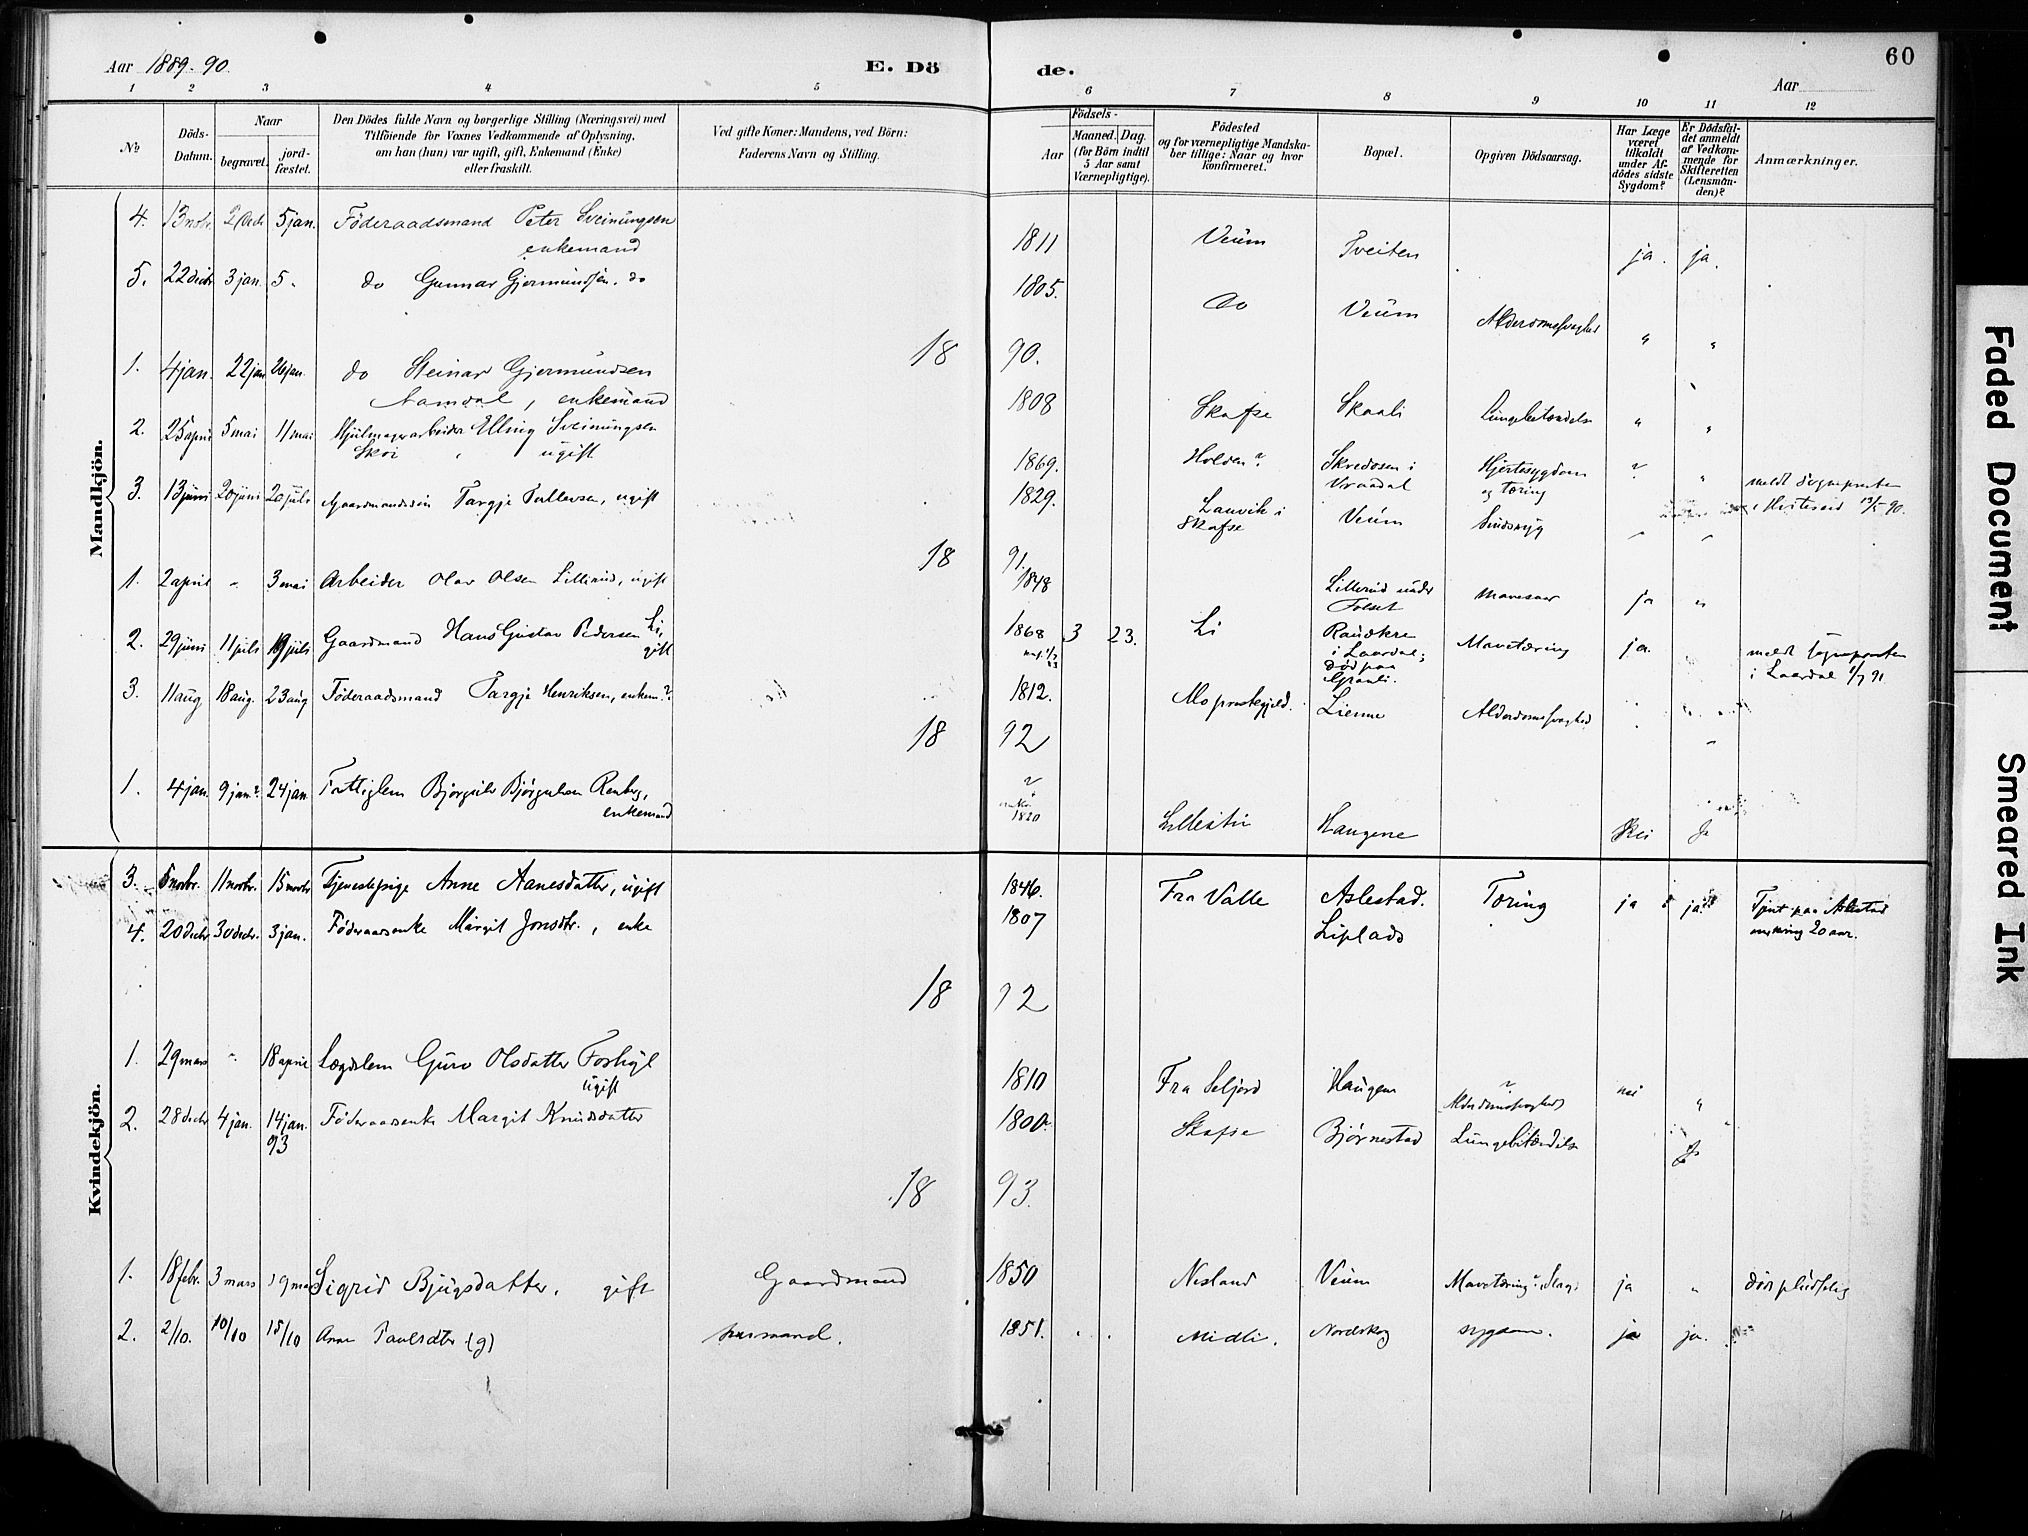 Aar 1889-90.
E. Dö
de.
Aar
60
1 2 3 4 5 6 7 8 9 10 11 12
№
Döds-Datum.
Naar
begravet.
jord-fæstet.
Den Dödes fulde Navn og borgerlige Stilling (Næringsvei) med
Tilföiende for Voxnes Vedkommende af Oplysning,
om han (hun) var ugift, gift, Enkemand (Enke)
eller fraskilt.
Ved gifte Koner: Mandens, ved Börn:
Faderens Navn og Stilling.
Födsels-
Aar
Maaned. Dag.
(for Börn indtil
5 Aar samt
Værnepligtige).
Födested
og for værnepligtige Mandska-
ber tillige: Naar og hvor
konfirmeret.
Bopæl.
Opgiven Dödsaarsag.
Har Læge
været
tilkaldt
under Af-
dödes sidste
Sygdom?
Er Dödsfal-
det anmeldt
af Vedkom-
mende for
Skifteretten
(Lensman-
den)?
Anmærkninger.
Mandkjön.
4. 13 novbr. 5 jan. Föderaadsmand Peter Sveinungsen
enkemand
1811 Veum Tveiten ja. ja.
5. 22 decbr 3 jan. 5 do Gunnar Gjermundsen. do
1805. do Veum Alderdomssvaghed " "
18 90.
1. 4 jan. 22 jan 26 jan. do Steinar Gjermundsen
enkemand
1808 Skafse Skaali Lungebetændelse " "
2. 25 april 5 mai 11 mai Hjulmagerarbeider Elling Sveinungsen
Skoi ugift
1869. Holden? Skredosen i
Vraadal
Hjertesygdom
og Tæring
? "
meldt sognepresten
i Hviteseid 13/5 90.
3. 13 juni 20 juni 20 juli Gaardmandssön Targje Tallevsen, ugift
1829. Lauvik i
Skafse
Veum Sindssyg " "
18 91.
1. 2 april " 3 mai Arbeider Olav Olsen Lillerud, ugift
1848 Lillerud under
Tolset
Mavesaar ja "
2. 29 juni 11 juli 19 juli Gaardmand Hans Gustav Pedersen Li,
gift
1868 3 23. Li Raudkre
i Laardal;
död paa
Grauli.
Mavetæring ja.
meldt sognepresten
i Laardal 1/7 91
3. 11 aug 18 aug. 23 aug Föderaadsmand Targje Henriksen, enkem.?
1812. Mo prestegjeld. Lienne Alderdomssvaghed
18 92
1. 4 jan. 9 jan? 24 jan. Fattiglem Bjørgulv Bjørgulvsen Renberg,
enkemand
?
omkr.
1820
Haugene Nei Ja
Kvindekjön.
3. 5 novbr. 11 novbr. 15 novbr Tjenestepige Anne Aanesdatter, ugift
1846. Fra Valle Aslestad. Tæring ja ja
Tjent paa Aslestad
omkring 20 aar.
4. 20 decbr 30 decbr. 3 jan. Föderaadsenke Margit Jonsdtr., enke
1807 Liplads
18 92
1. 29 mars " 18 april Lægdslem Guro Olsdatter
ugift
1810 Fra Seljord Haugen ?
Alderdomssvaghed
nei "
2. 28 decbr 4 jan. 14 jan.
93
Föderaadsenke Margit Knudsdatter
1800. Skafse Bjørnestad Lungebetændelse Ja
18 93.
1. 18 febr. 3 mars 19 mars Sigrid Bjugsdatter, gift Gaardmand
1850 Nesland Veum Mavetæring? Slag. ja " död pludselig
2. 2/10. 10/10 15/10 Anne Paulsdtr (g) husmand.
1851. Midli. Nordskog sygdom. ja ja.
Faded Document
Smeared Ink